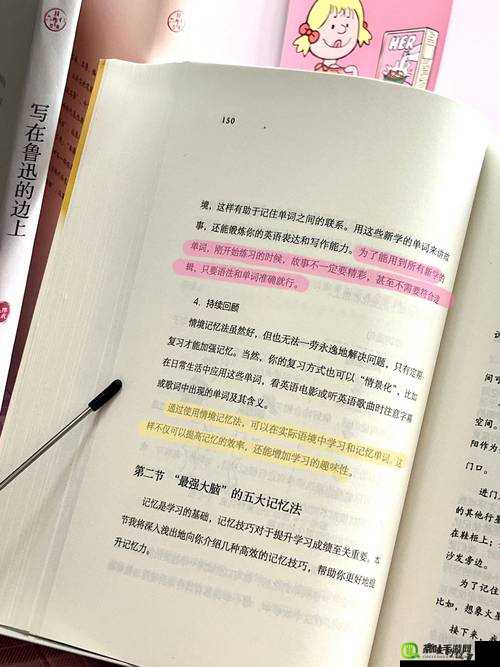 写在鲁迅的边上
HER
150
境，这样有助于记住单词之间的联系。用这些新学的单词来讲故
事，还能锻炼你的英语表达和写作能力。为了能用到所有新学的
单词，刚开始练习的时候，故事不一定要精彩，甚至不需要符合逻
辑，只要语法和单词准确就行。
4. 持续回顾
情境记忆法虽然好，但也无法一劳永逸地解决问题，只有定期
复习才能加强记忆。当然，你的复习方式也可以“情景化”，比如
在日常生活中应用这些单词，看英语电影或听英语歌曲时注意字幕
或歌词中出现的单词及其含义。
通过使用情境记忆法，可以在实际语境中学习和记忆单词，这
样不仅可以提高记忆的效率，还能增加学习的趣味性。
第二节 “最强大脑”的五大记忆法
记忆是学习的基础，记忆技巧对于提升学习成绩至关重要。本
节我将深入浅出地向你介绍几种高效的记忆技巧，帮助你更好地提
升记忆力。
间可
空间。
阳作为
进门
的其他行星
在鞋柜上；
沙发旁边。
为了记住
比如，想象火星
接下来，在